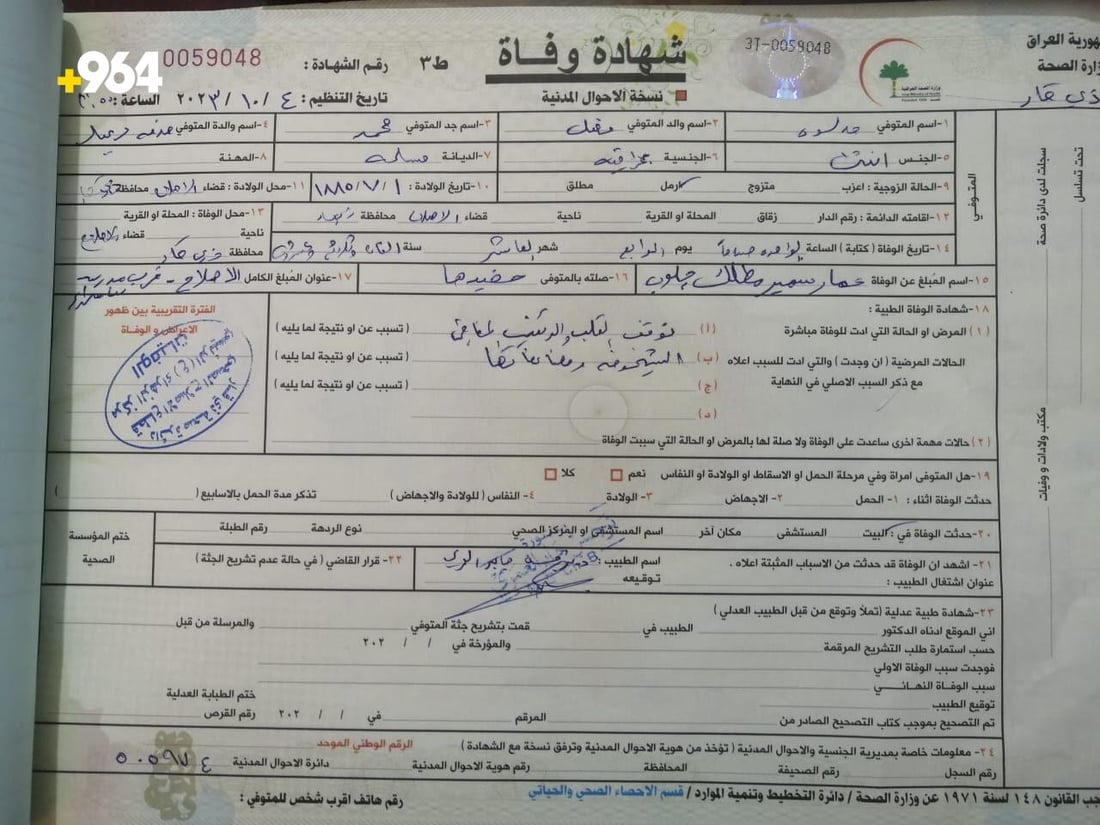 جمهورية العراق
وزارة الصحة
ذي قار
شهادة وفاة
ط٣
رقم الشهادة :
0059048
+964
3T-0059048
نسخة الاحوال المدنية
تاريخ التنظيم : ٤ / ١٠ / ٢٠٢٣ الساعة :
١-اسم المتوفي
٢-اسم والد المتوفي
٣-اسم جد المتوفي محمد
٤-اسم والدة المتوفي
٥-الجنس انثى
٦-الجنسية عراقية
٧-الديانة مسلمة
٨-المهنة
٩-الحالة الزوجية : اعزب متزوج ارمل مطلق
١٠-تاريخ الولادة : ١ / ٧ / ١٨٨٥
١١-محل الولادة : قضاء الاصلاح محافظة
١٢-اقامته الدائمة : رقم الدار زقاق المحلة او القرية ناحية قضاء الاصلاح محافظة ذي قار
١٣-محل الوفاة : المحلة او القرية
ناحية قضاء الاصلاح
محافظة ذي قار
١٤-تاريخ الوفاة (كتابة) الساعة الواحدة صباحاً يوم الرابع شهر العاشر سنة الفان وثلاثة وعشرون
١٥-اسم المُبلغ عن الوفاة عمار سمير مطلك چلوب
١٦-صلته بالمتوفي حفيدها
١٧-عنوان المُبلغ الكامل الاصلاح - قرب مدرسة
١٨-شهادة الوفاة الطبية :
(١) المرض او الحالة التي ادت للوفاة مباشرة
(أ) توقف القلب والرئتين المفاجئ (تسبب عن او نتيجة لما يليه)
الحالات المرضية (ان وجدت) والتي ادت للسبب اعلاه
(ب) الشيخوخة ومضاعفاتها (تسبب عن او نتيجة لما يليه)
مع ذكر السبب الاصلي في النهاية
(ج) (تسبب عن او نتيجة لما يليه)
(د)
الفترة التقريبية بين ظهور
الاعراض والوفاة
دائرة صحة ذي قار
قطاع الاصلاح الصحي
الوفيات
(٢) حالات مهمة اخرى ساعدت على الوفاة ولا صلة لها بالمرض او الحالة التي سببت الوفاة
١٩-هل المتوفى امراة وفي مرحلة الحمل او الاسقاط او الولادة او النفاس نعم كلا
حدثت الوفاة اثناء : ١- الحمل ٢- الاجهاض ٣- الولادة ٤- النفاس (للولادة والاجهاض) تذكر مدة الحمل بالاسابيع ( )
٢٠-حدثت الوفاة في : البيت المستشفى مكان آخر اسم المستشفى او المركز الصحي نوع الردهة رقم الطبلة
ختم المؤسسة
الصحية
٢١- اشهد ان الوفاة قد حدثت من الاسباب المثبتة اعلاه .
عنوان اشتغال الطبيب :
اسم الطبيب :
توقيعه
٢٢- قرار القاضي (في حالة عدم تشريح الجثة)
٢٣-شهادة طبية عدلية (تملأ وتوقع من قبل الطبيب العدلي)
اني الموقع ادناه الدكتور الطبيب في قمت بتشريح جثة المتوفي والمرسلة من قبل
حسب استمارة طلب التشريح المرقمة والمؤرخة في / / ٢٠٢
فوجدت سبب الوفاة الاولي
سبب الوفاة النهائي
توقيع الطبيب
ختم الطبابة العدلية
تم التصحيح بموجب كتاب التصحيح الصادر من المرقم في / / ٢٠٢ رقم القرص
٢٤- معلومات خاصة بمديرية الجنسية والاحوال المدنية (تؤخذ من هوية الاحوال المدنية وترفق نسخة مع الشهادة) الرقم الوطني الموحد
رقم السجل رقم الصحيفة المحافظة رقم هوية الاحوال المدنية دائرة الاحوال المدنية
٥٠٥٩٧٤
جب القانون ١٤٨ لسنة ١٩٧١ عن وزارة الصحة / دائرة التخطيط وتنمية الموارد / قسم الاحصاء الصحي والحياتي
رقم هاتف اقرب شخص للمتوفي :
المتوفي
سجلت لدى دائرة صحة
مكتب ولادات و وفيات
تحت تسلسل